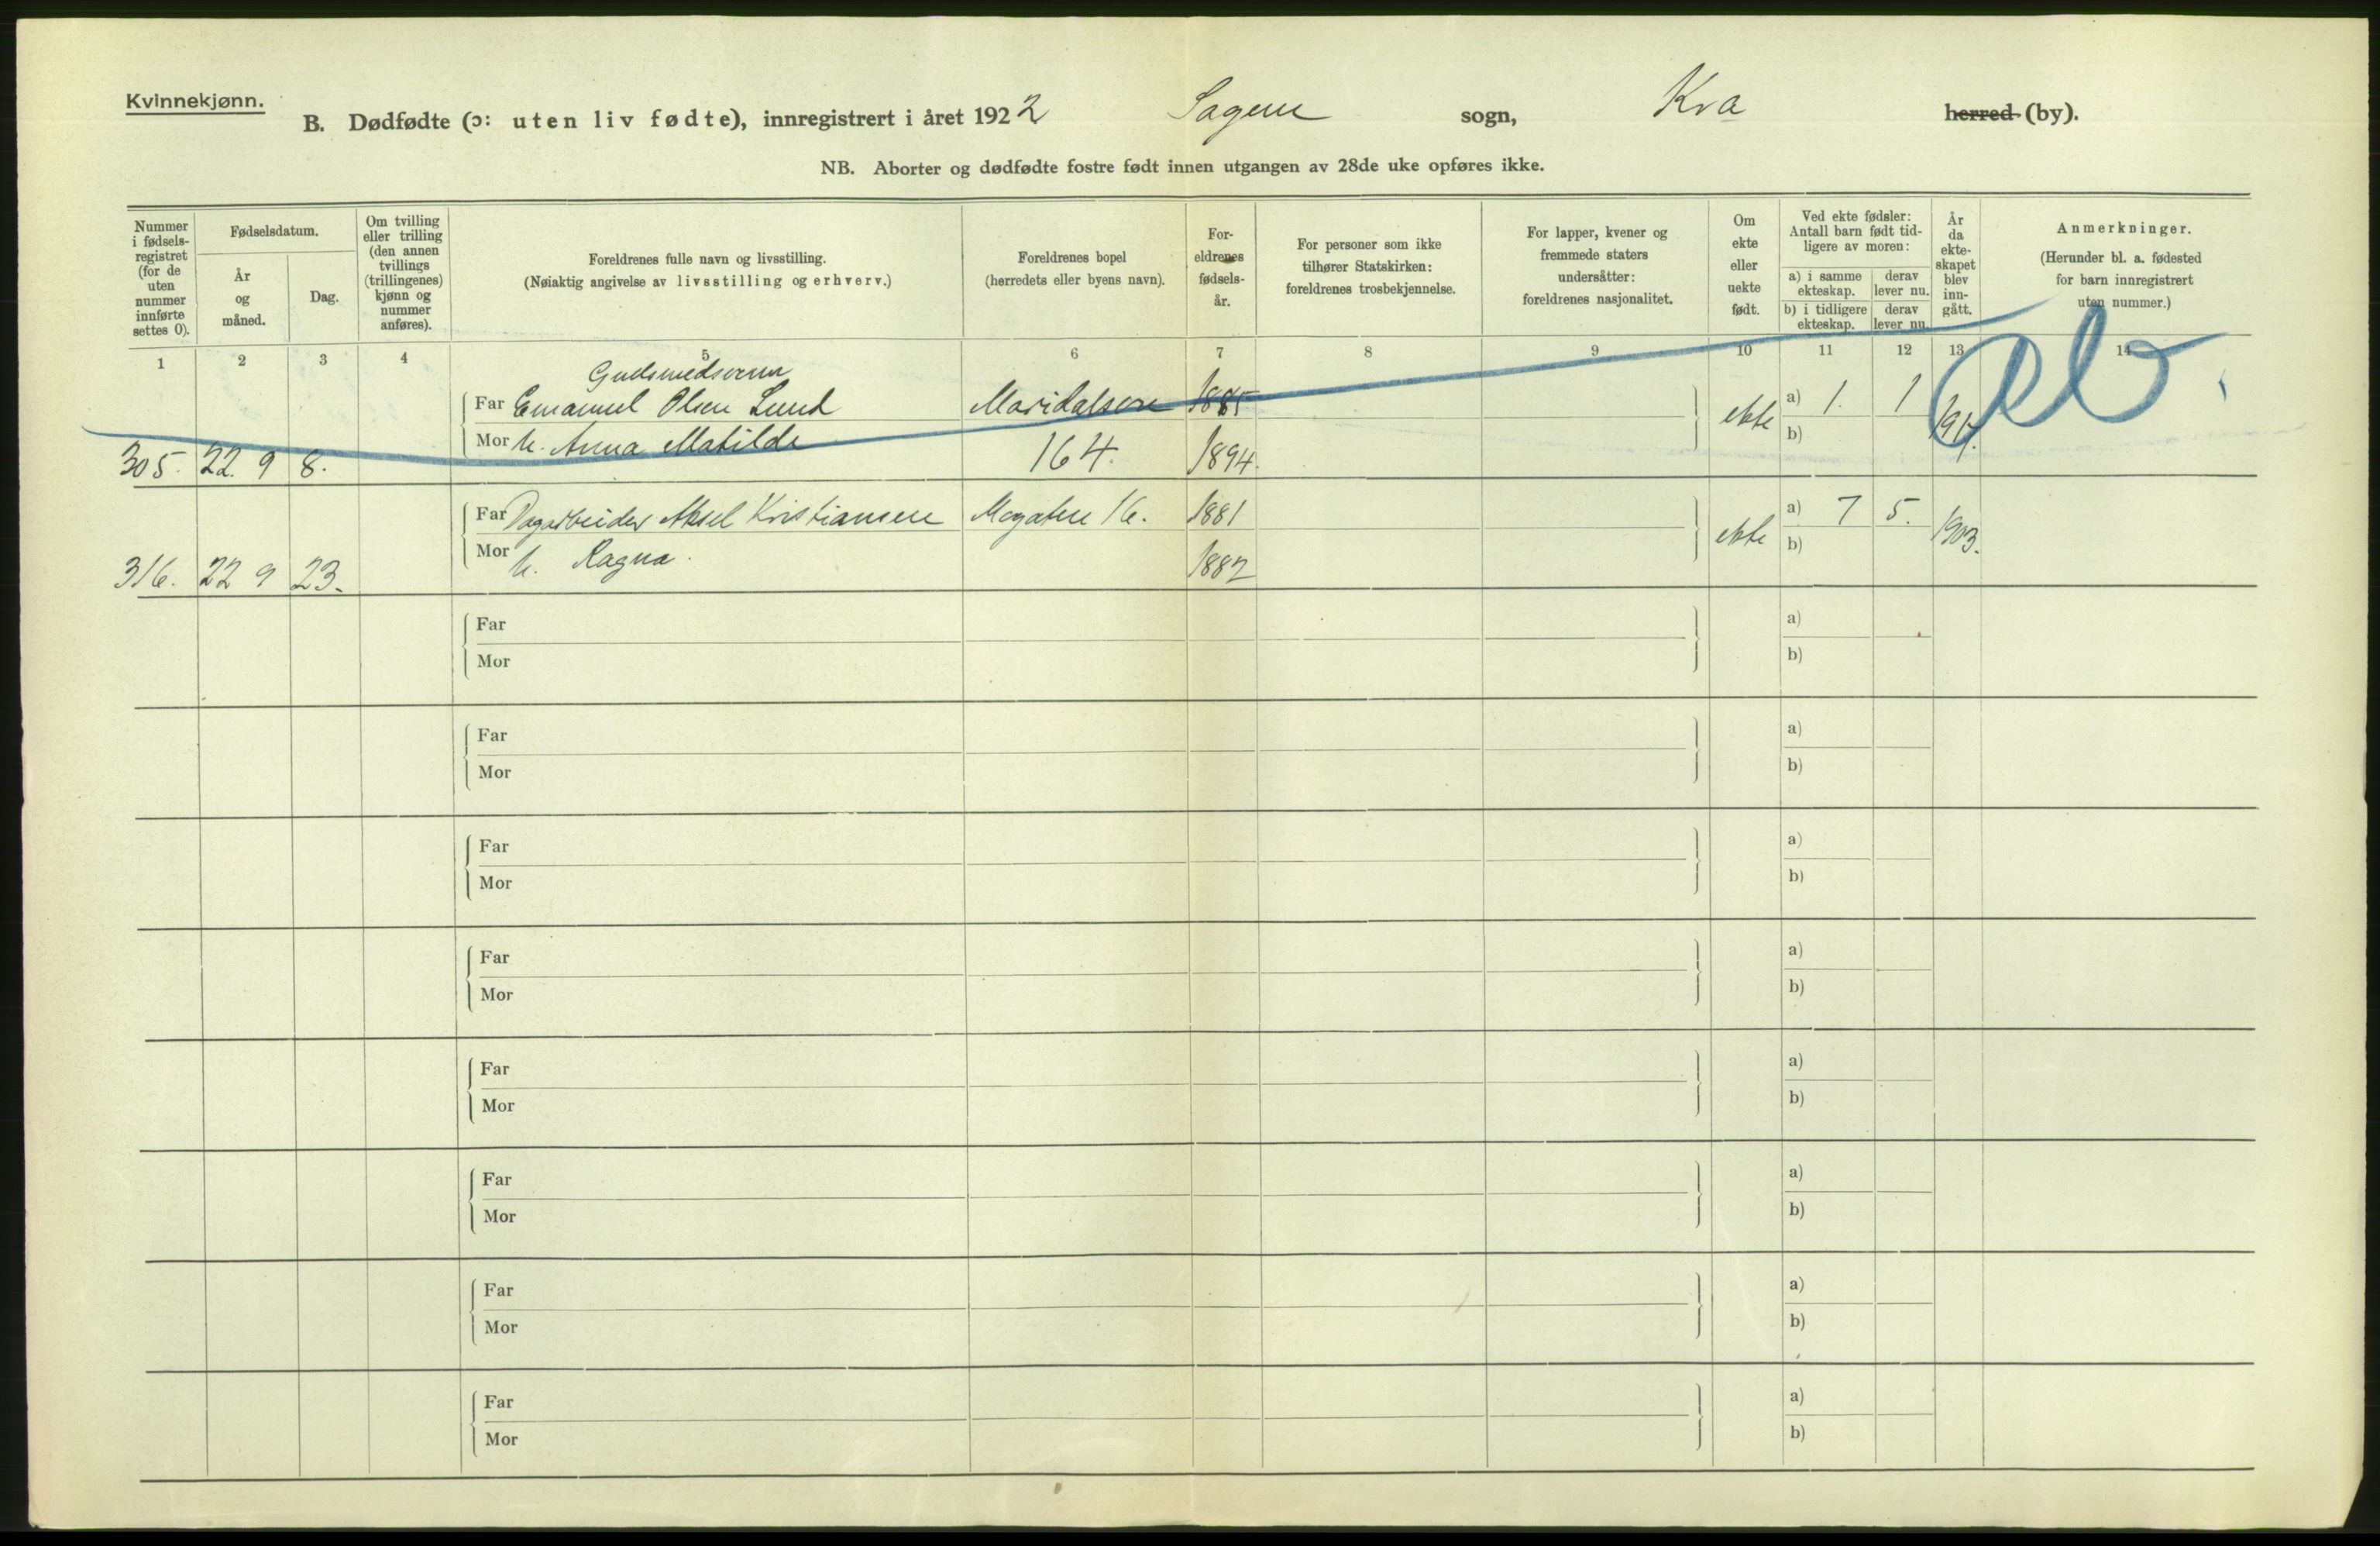 Kvinnekjønn.
B. Dødfødte (ɔ: uten liv fødte), innregistrert i året 1922 Sagene sogn, Kra herred (by).
NB. Aborter og dødfødte fostre født innen utgangen av 28de uke opføres ikke.
Nummer i fødsels-registret (for de uten nummer innførte settes 0).
Fødselsdatum.
År og måned.
Dag.
Om tvilling eller trilling (den annen tvillings (trillingenes) kjønn og nummer anføres).
Foreldrenes fulle navn og livsstilling.
(Nøiaktig angivelse av livsstilling og erhverv.)
Foreldrenes bopel
(herredets eller byens navn).
For-eldrenes fødsels-år.
For personer som ikke tilhører Statskirken: foreldrenes trosbekjennelse.
For lapper, kvener og fremmede staters undersåtter: foreldrenes nasjonalitet.
Om ekte eller uekte født.
Ved ekte fødsler: Antall barn født tid-ligere av moren:
a) i samme ekteskap.
derav lever nu.
b) i tidligere ekteskap.
derav lever nu.
År da ekte-skapet blev inn-gått.
Anmerkninger.
(Herunder bl. a. fødested for barn innregistrert uten nummer.)
1 2 3 4 5 6 7 8 9 10 11 12 13 14
Far Emanuel Olsen Lund 1885 a) 1. 1
Mor h. Anna Matilde ekte b)
305. 22 9 8. 164. 1894.
Far Dagarbeider Aksel Kristiansen 16. 1881 a) 7 5.
Mor h. Ragna. ekte b) 1903.
316. 22 9 23. 1882
Far a)
Mor b)
Far a)
Mor b)
Far a)
Mor b)
Far a)
Mor b)
Far a)
Mor b)
Far a)
Mor b)
Far a)
Mor b)
Far a)
Mor b)